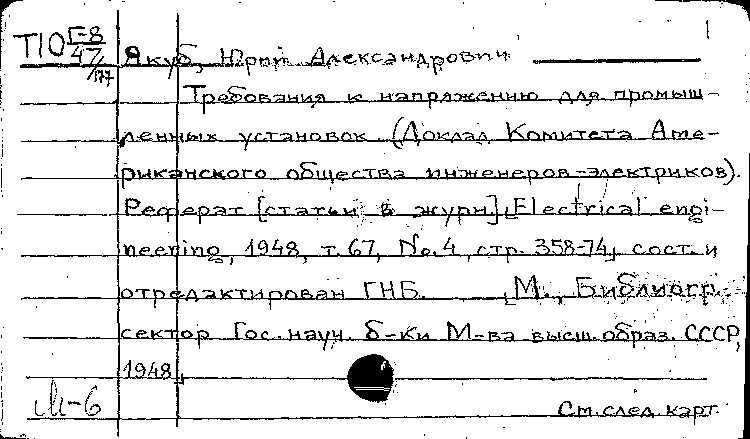 1
Т10 Г-8
47/177
Якуб, Юрий Александрович
Требования к напряжению для промыш-
ленных установок. (Доклад Комитета Аме-
риканского общества инженеров-электриков).
Реферат [статьи в журн.] „Electrical engi-
neering, 1948, т. 67, No. 4, стр. 358-74, сост. и
отредактирован ГНБ. М., Библиогр.
сектор Гос. науч. б-ки М-ва высш. образ. СССР,
1948.
М-6
См. след. карт.